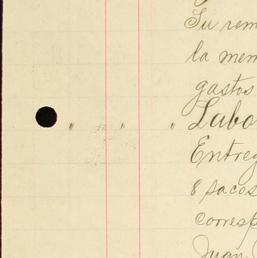 Su rem
la mem
gastos
" " " Labo
Entreg
8 sacos
corresp
Juan